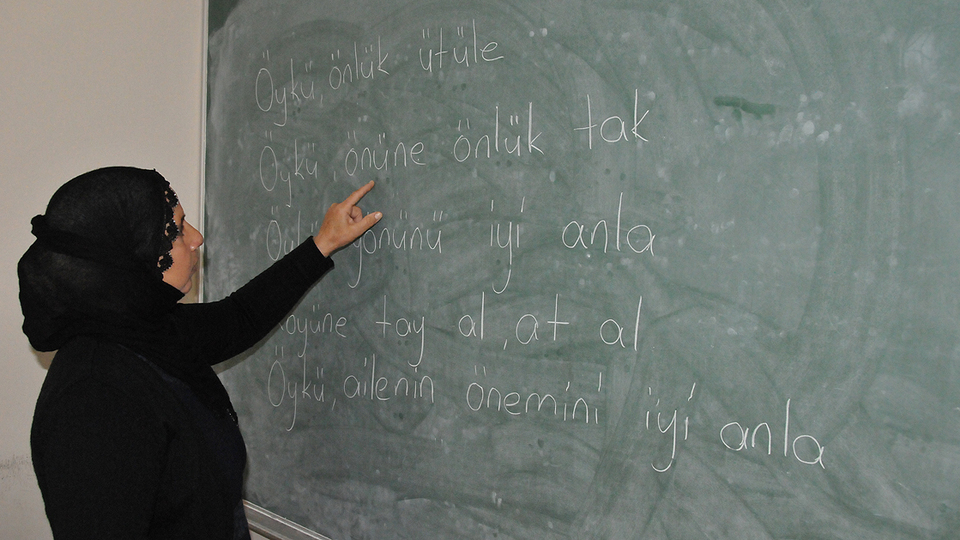 Öykü, önlük ütüle
Öykü, önüne önlük tak
yönünü iyi anla
tay al, at al
Öykü, ailenin önemini iyi anla